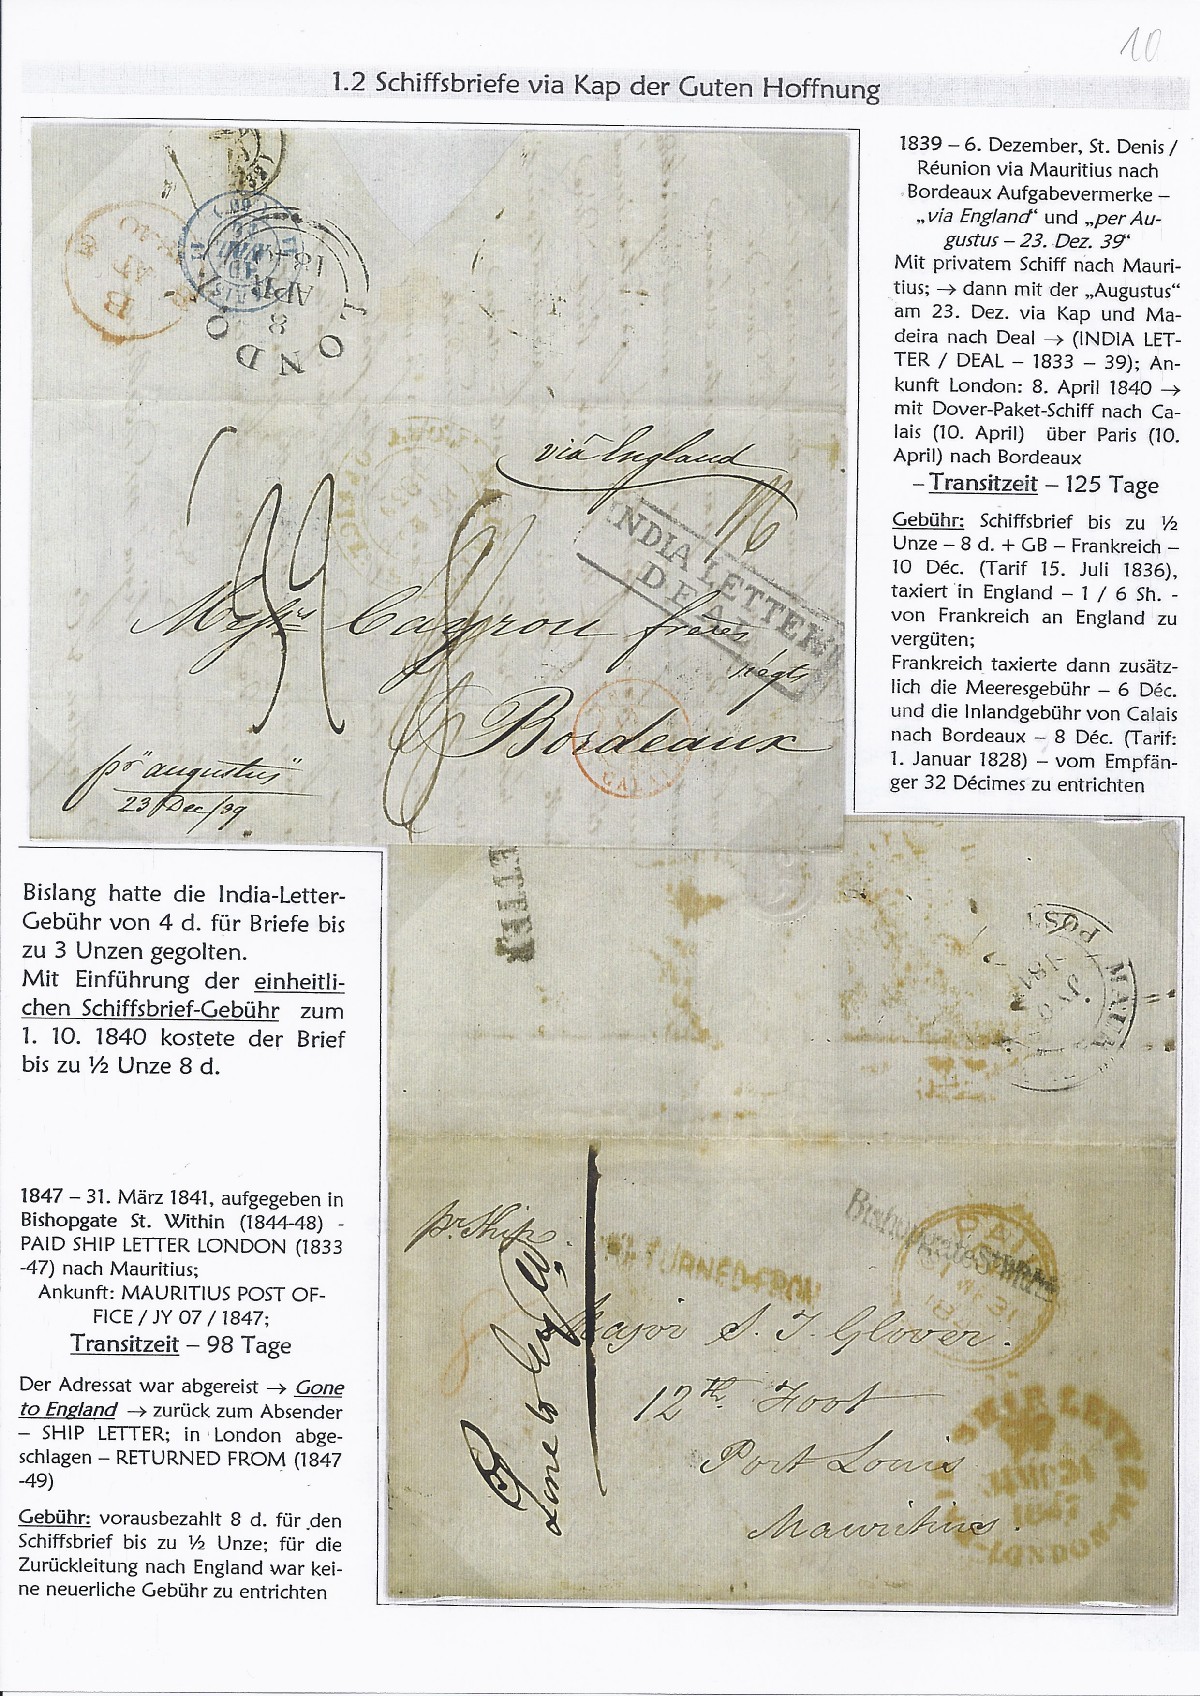 10
1.2 Schiffsbriefe via Kap der Guten Hoffnung
1839 – 6. Dezember, St. Denis /
Réunion via Mauritius nach
Bordeaux Aufgabevermerke –
„via England“ und „per Au-
gustus – 23. Dez. 39“
Mit privatem Schiff nach Mauri-
tius; → dann mit der „Augustus“
am 23. Dez. via Kap und Ma-
deira nach Deal → (INDIA LET-
TER / DEAL – 1833 – 39); An-
kunft London: 8. April 1840 →
mit Dover-Paket-Schiff nach Ca-
lais (10. April) über Paris (10.
April) nach Bordeaux
– Transitzeit – 125 Tage
Gebühr: Schiffsbrief bis zu ½
Unze – 8 d. + GB – Frankreich –
10 Déc. (Tarif 15. Juli 1836),
taxiert in England – 1 / 6 Sh. -
von Frankreich an England zu
vergüten;
Frankreich taxierte dann zusätz-
lich die Meeresgebühr – 6 Déc.
und die Inlandgebühr von Calais
nach Bordeaux – 8 Déc. (Tarif:
1. Januar 1828) – vom Empfän-
ger 32 Décimes zu entrichten
LONDO
8
APR
18
B
via England
1/6
INDIA LETTER
DEAL
Messrs Cayrou frères
négts
Bordeaux
pr "augustus"
23 Dec/39
Bislang hatte die India-Letter-
Gebühr von 4 d. für Briefe bis
zu 3 Unzen gegolten.
Mit Einführung der einheitli-
chen Schiffsbrief-Gebühr zum
1. 10. 1840 kostete der Brief
bis zu ½ Unze 8 d.
1847 – 31. März 1841, aufgegeben in
Bishopgate St. Within (1844-48) -
PAID SHIP LETTER LONDON (1833
-47) nach Mauritius;
Ankunft: MAURITIUS POST OF-
FICE / JY 07 / 1847;
Transitzeit – 98 Tage
Der Adressat war abgereist → Gone
to England → zurück zum Absender
– SHIP LETTER; in London abge-
schlagen – RETURNED FROM (1847
-49)
Gebühr: vorausbezahlt 8 d. für den
Schiffsbrief bis zu ½ Unze; für die
Zurückleitung nach England war kei-
ne neuerliche Gebühr zu entrichten
ETTER
POST
MAUR
JY 0
184
pr Ship
RETURNED FROM
PAID
MR 31
Major S. T. Glover.
12th Foot
Port Louis
Mauritius.
Gone to
SHIP LETTER
31 MR 31
1847
LONDON